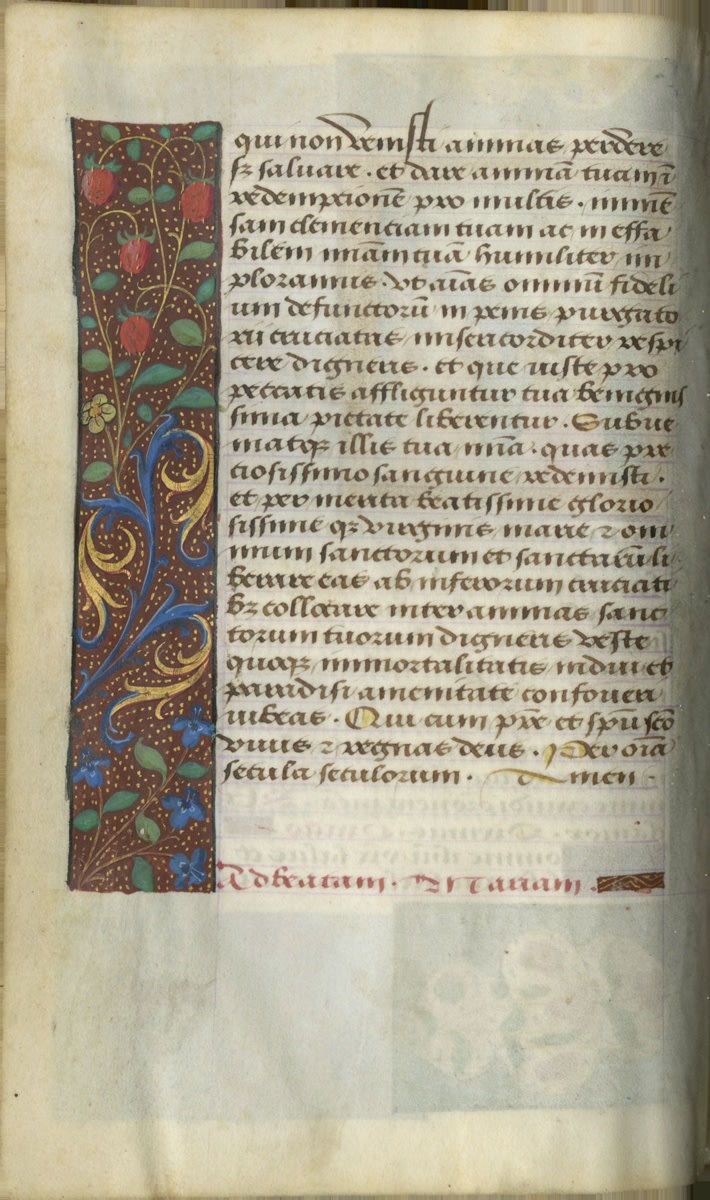 qui non venisti animas perdere
sʒ saluare · et dare animā tuam ī
redempcionē pro multis · inmē
sam clemenciam tuam ac in effa
bilem mīam tuā humiliter im
ploramus · vt aīas omniū fideli
um defunctorū in penis purgato
rii cruciatas misericorditer respi
cere digneris · et que iuste pro
peccatis affliguntur tua benignis
sima pietate liberentur · Subue
niatqʒ illis tua mīa · quas pre
ciosissimo sanguine redemisti ·
et per merita beatissime glorio
sissime qʒ virginis marie ⁊ om
nium sanctorum et sanctarū li
berare eas ab inferorum cruciati
bʒ collocare inter animas sanc
torum tuorum digneris veste
quoqʒ immortalitatis indui et
paradisi amenitate confoueri
iubeas · Qui cum pr̄e et spū scō
viuis ⁊ regnas deus · Per oīa
secula seculorum · Amen ·
Ad beatam · Mariam ·